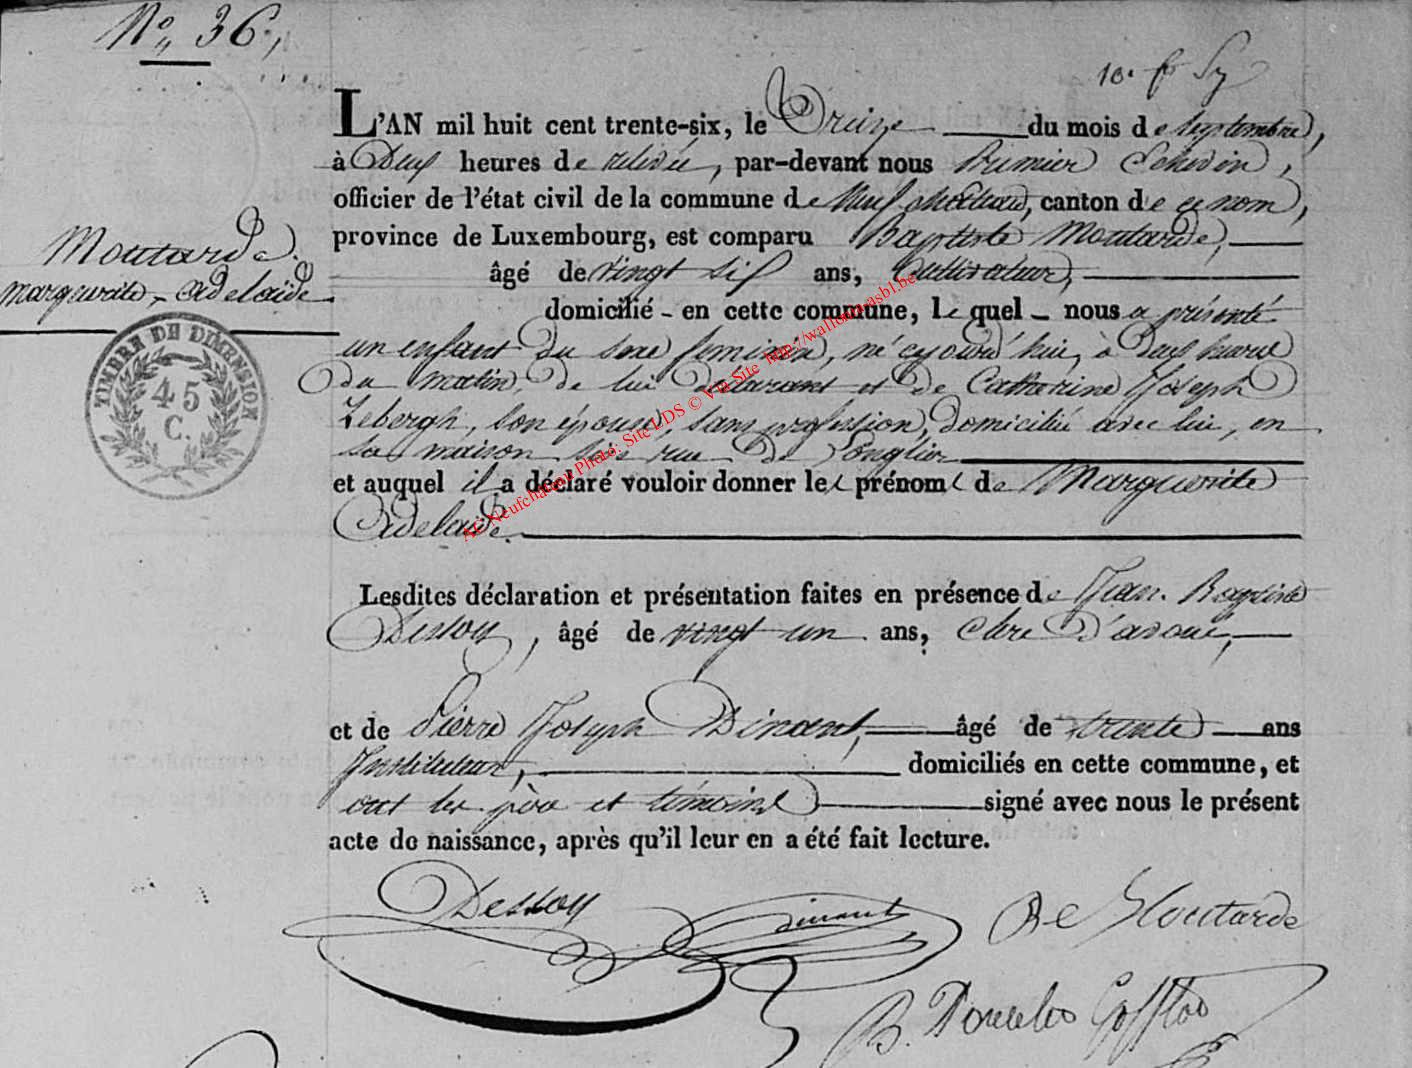 N° 36,
10. Sy
L'AN mil huit cent trente-six, le Treize du mois de septembre,
à Deux heures de relevée, par-devant nous Premier Echevin,
officier de l'état civil de la commune de Neufchâteau, canton de ce nom,
province de Luxembourg, est comparu Baptiste Moutarde,
âgé de vingt six ans, Cultivateur,
domicilié en cette commune, lequel nous a présenté
un enfant du sexe feminin, né cejourd'hui, à Deux heures
du matin, de lui déclarant et de Catherine Joseph
Zebergh, son épouse, sans profession, domiciliée avec lui, en
sa maison sise rue de Longlier
et auquel il a déclaré vouloir donner les prénoms de Marguerite
Adelaïde.
Lesdites déclaration et présentation faites en présence de Jean Baptiste
Dessoy, âgé de vingt un ans, clerc d'avoué,
et de Pierre Joseph Dinant, âgé de trente ans
Instituteur, domiciliés en cette commune, et
ont les père et témoins signé avec nous le présent
acte de naissance, après qu'il leur en a été fait lecture.
Moutarde
Marguerite Adelaïde
TIMBRE DE DIMENSION
45
C.
AC Neufchateau Photo: Site LDS © Via Site http://wallonia-asbl.be
Dessoy
Dinant
Bte Moutarde
B.